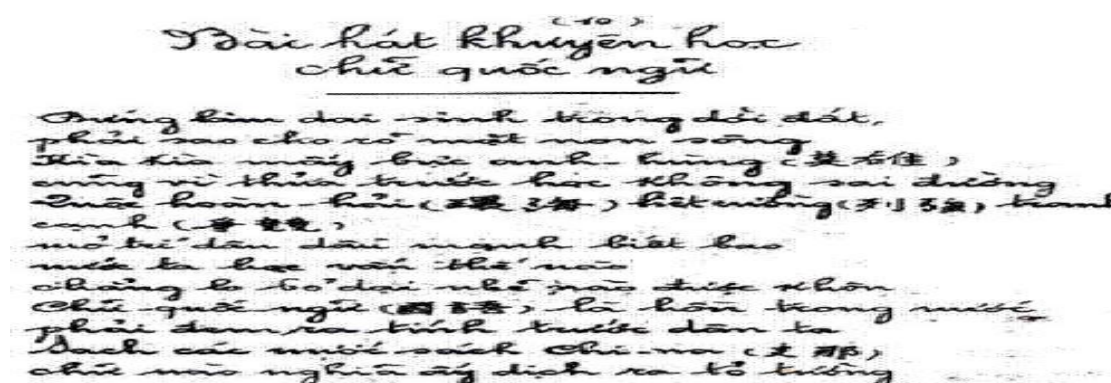 (10)
Bài hát khuyên học
chữ quốc ngữ
sinh trong đất,
phải sao cho rõ mặt non sông
Kìa Kìa mấy bực anh-hùng
cũng vì thủa trước học không sai đường
hoàn-hải (環海) liệt cường (列強) tranh
cạnh (爭競)
mở trí dân mạnh biết bao
nước ta học vấn thế nào
chẳng lo dại nhẽ nào được khôn
Chữ quốc ngữ (國語) là hồn trong nước
phải đem ra tính trước dân ta
Sách các nước sách Chi-na (支那)
chữ nào nghĩa ấy dịch ra tỏ tường